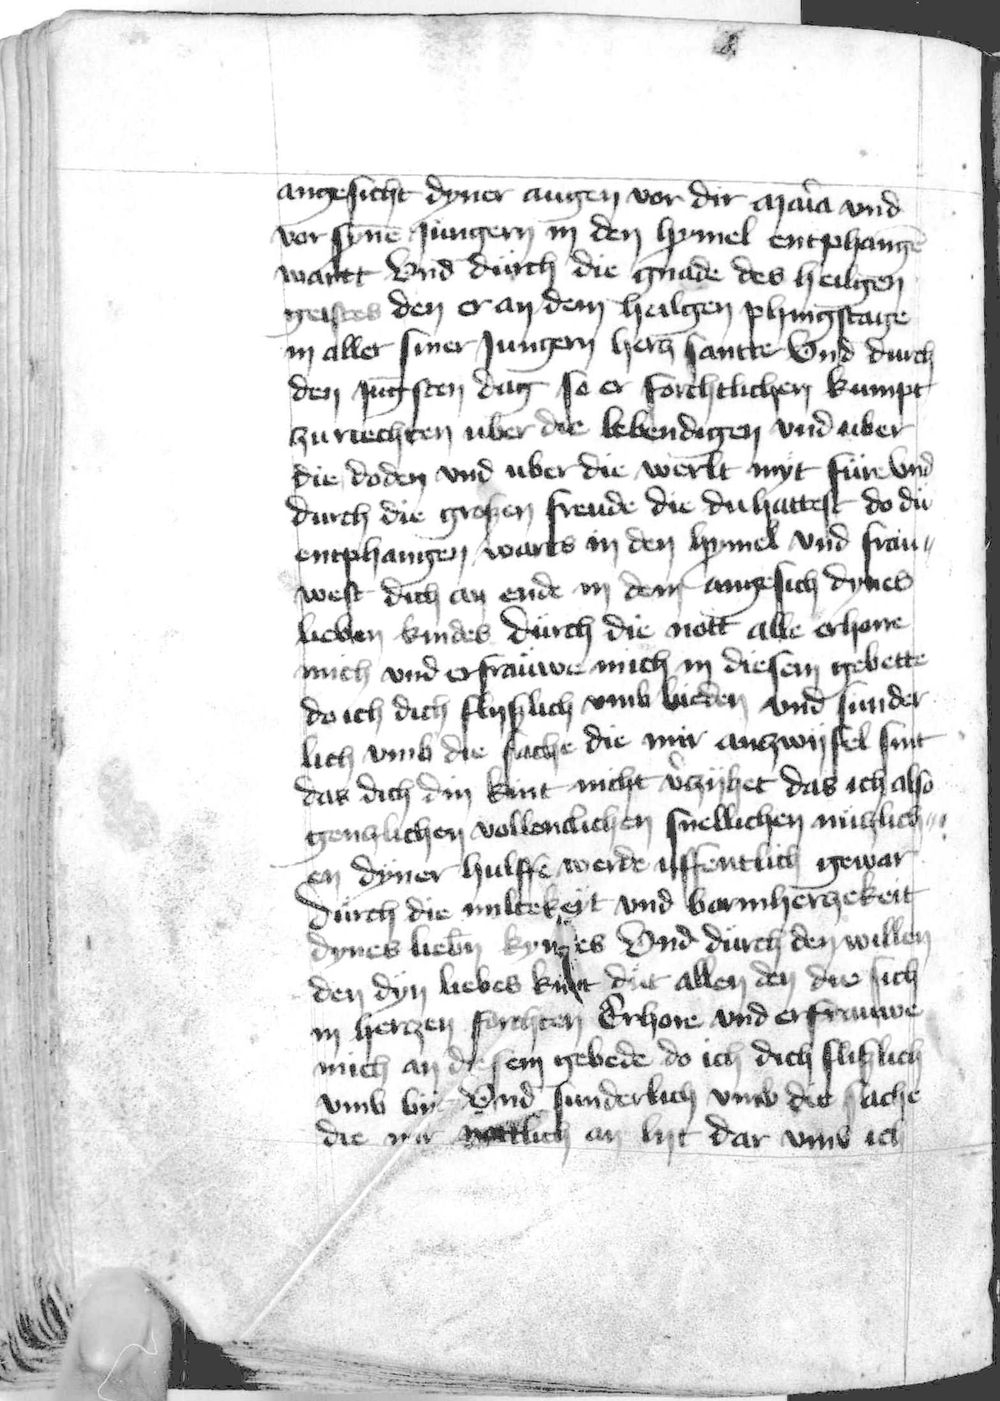 angesicht dyner augen vor dir maria vnd
vor syne Jungern in den hymel entphange
wartt Vnd durch die gnade des heilgen
geistes den er an dem heilgen phingstage
in aller siner Jungern hertz santte Vnd durch
den Jugsten dag so er forchtlichen kumpt
zu riechten uber die lebendigen vnd uber
die doden vnd uber die werlt myt füre vnd
durch die großen freude die du hattest do dü
entphangen warts in den hymel vnd frau„
west dich an ende in dem angesich dynes
lieben kindes Durch die nott alle erhore
mich vnd erfrauwe mich in diesem gebette
do ich dich flyßlich vmb bieden vnd sunder
lich vmb die sache die mir antzwijfel sint
das dich din kint nicht vzyhet das ich also
gentzlichen vollenclichen snellichen nutzlich„
en dyner hulffe werde uffentlich gewar
Durch die miltekeyt vnd barmhertzekeit
dynes liebn kyndes Vnd durch den willen
den dyn liebes kint dut allen den die sich
in hertzen forchten Erhore vnd erfrauwe
mich an diesem gebede do ich dich flißlich
vmb byt Vnd sunderlich vmb die sache
die mir nottlich an lyt dar vmb ich